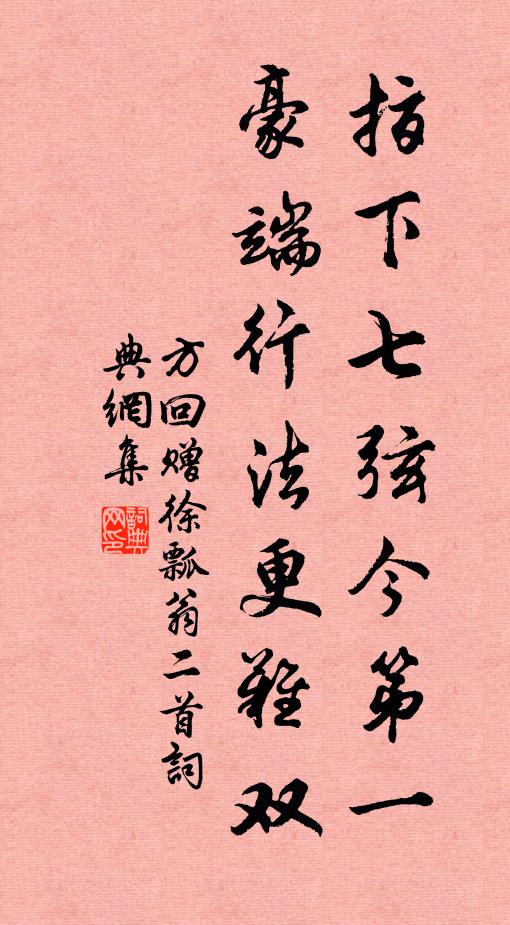 指下七弦今第一
豪端行法更難双
方回赠徐瓢翁二首詞
典網集
詞典
网印